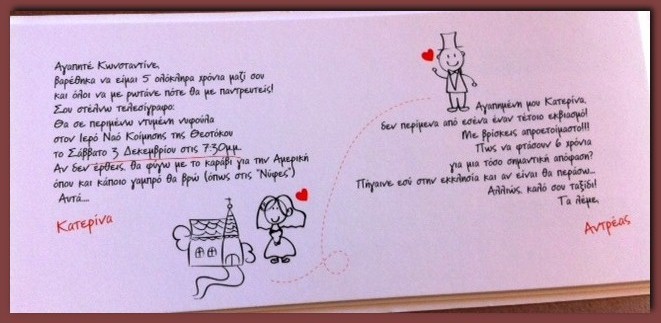 Αγαπητέ Κωνσταντίνε,
βαρέθηκα να είμαι 5 ολόκληρα χρόνια μαζί σου
και όλοι να με ρωτάνε πότε θα με παντρευτείς!
Σου στέλνω τελεσίγραφο:
Θα σε περιμένω ντυμένη νυφούλα
στον Ιερό Ναό Κοίμησης της Θεοτόκου
το Σάββατο 3 Δεκεμβρίου στις 7:30μμ.
Αν δεν έρθεις, θα φύγω με το καράβι για την Αμερική
όπου και κάποιο γαμπρό θα βρω (όπως στις "Νύφες")
Αυτά...
Κατερίνα
Αγαπημένη μου Κατερίνα,
δεν περίμενα από εσένα έναν τέτοιο εκβιασμό!
Με βρίσκεις απροετοίμαστο!!!
Πως να φτάσουν 6 χρόνια
για μια τόσο σημαντική απόφαση?
Πήγαινε εσύ στην εκκλησία και αν είναι θα περάσω...
Αλλιώς, καλό σου ταξίδι!
Τα λέμε,
Αντρέας